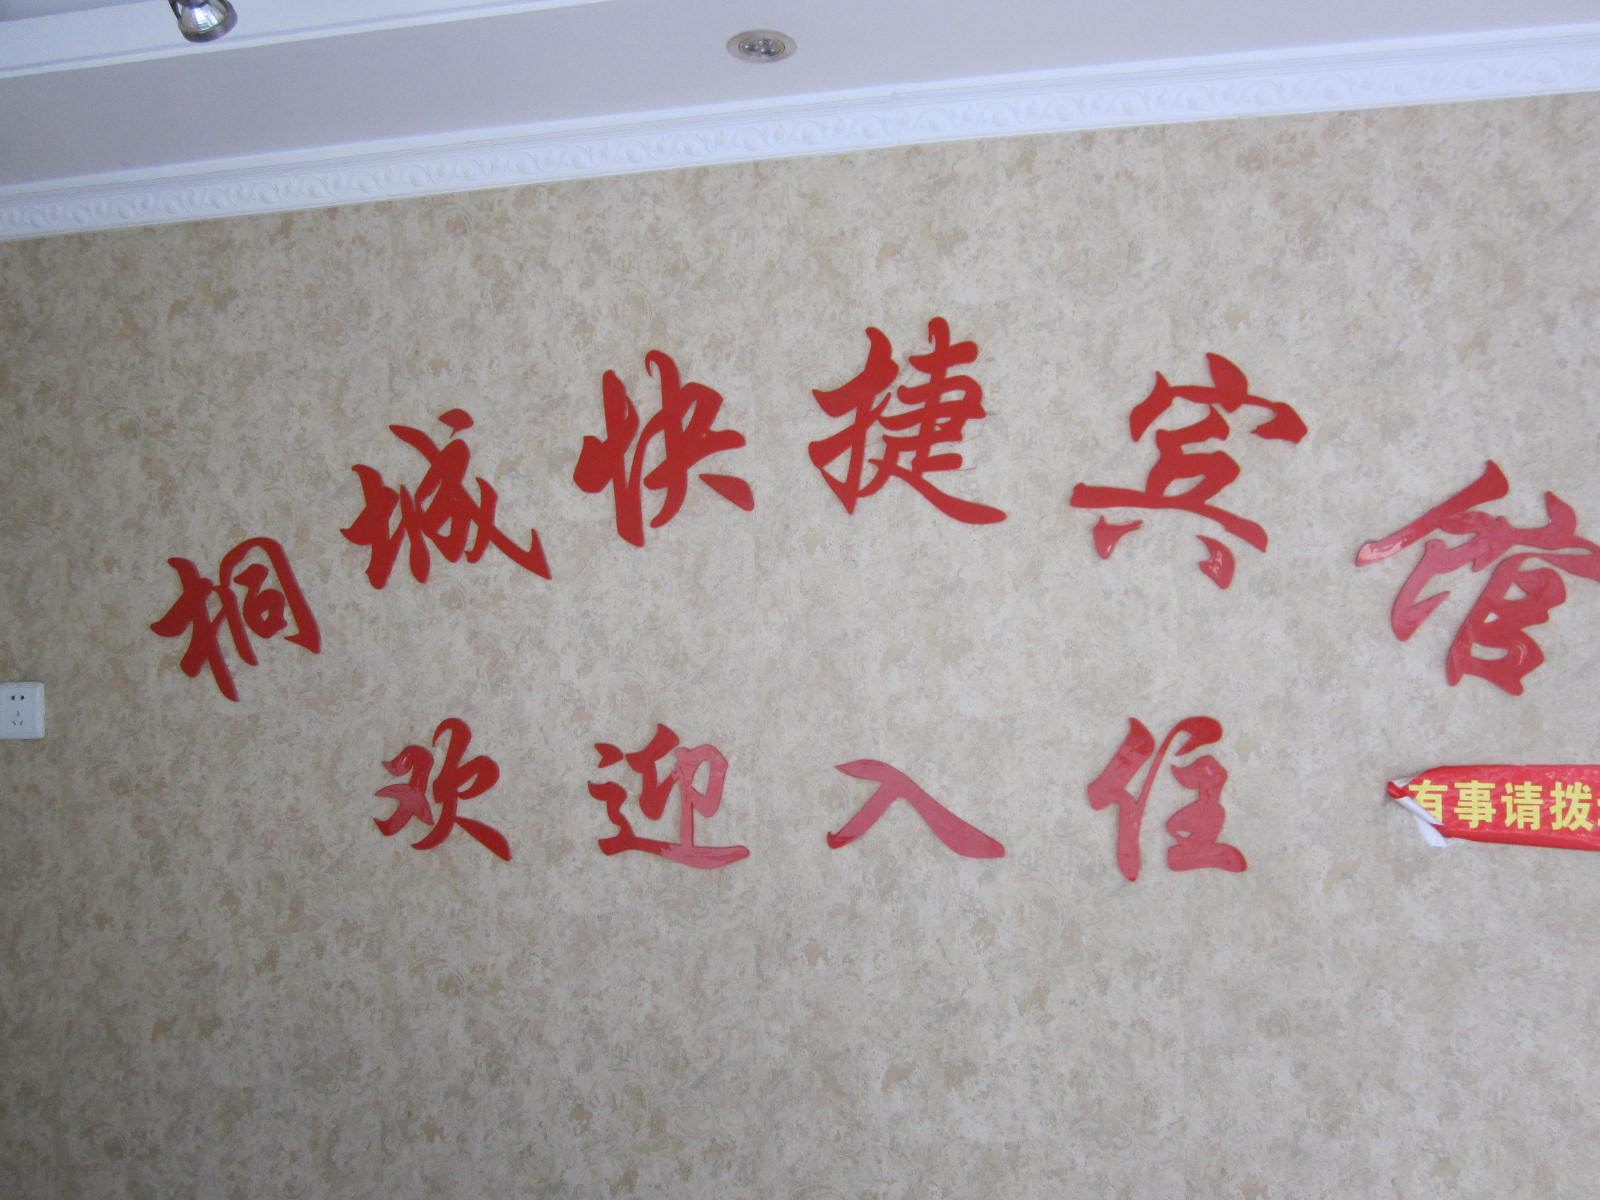 桐城快捷宾馆
欢迎入住
有事请拨